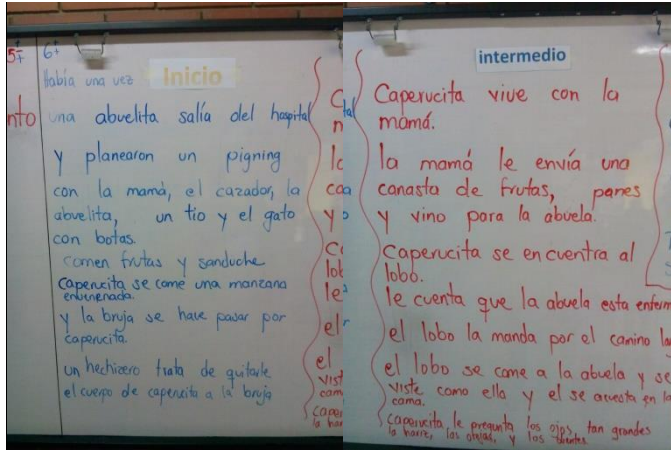 5ª
6ª
Inicio
Había una vez
nto
una abuelita salía del hospital
y planearon un pigning
con la mamá, el cazador, la
abuelita, un tio y el gato
con botas.
comen frutas y sanduche
Caperucita se come una manzana
envenenada.
y la bruja se hace pasar por
caperucita.
un hechizero trata de quitarle
el cuerpo de caperucita a la bruja
intermedio
Caperucita vive con la
mamá.
la mamá le envía una
canasta de frutas, panes
y vino para la abuela.
Caperucita se encuentra al
lobo.
le cuenta que la abuela esta enferm
el lobo la manda por el camino la
el lobo se come a la abuela y se
viste como ella y el se acuesta en la
cama.
Caperucita, le pregunta los ojos, tan grandes
y los dientes